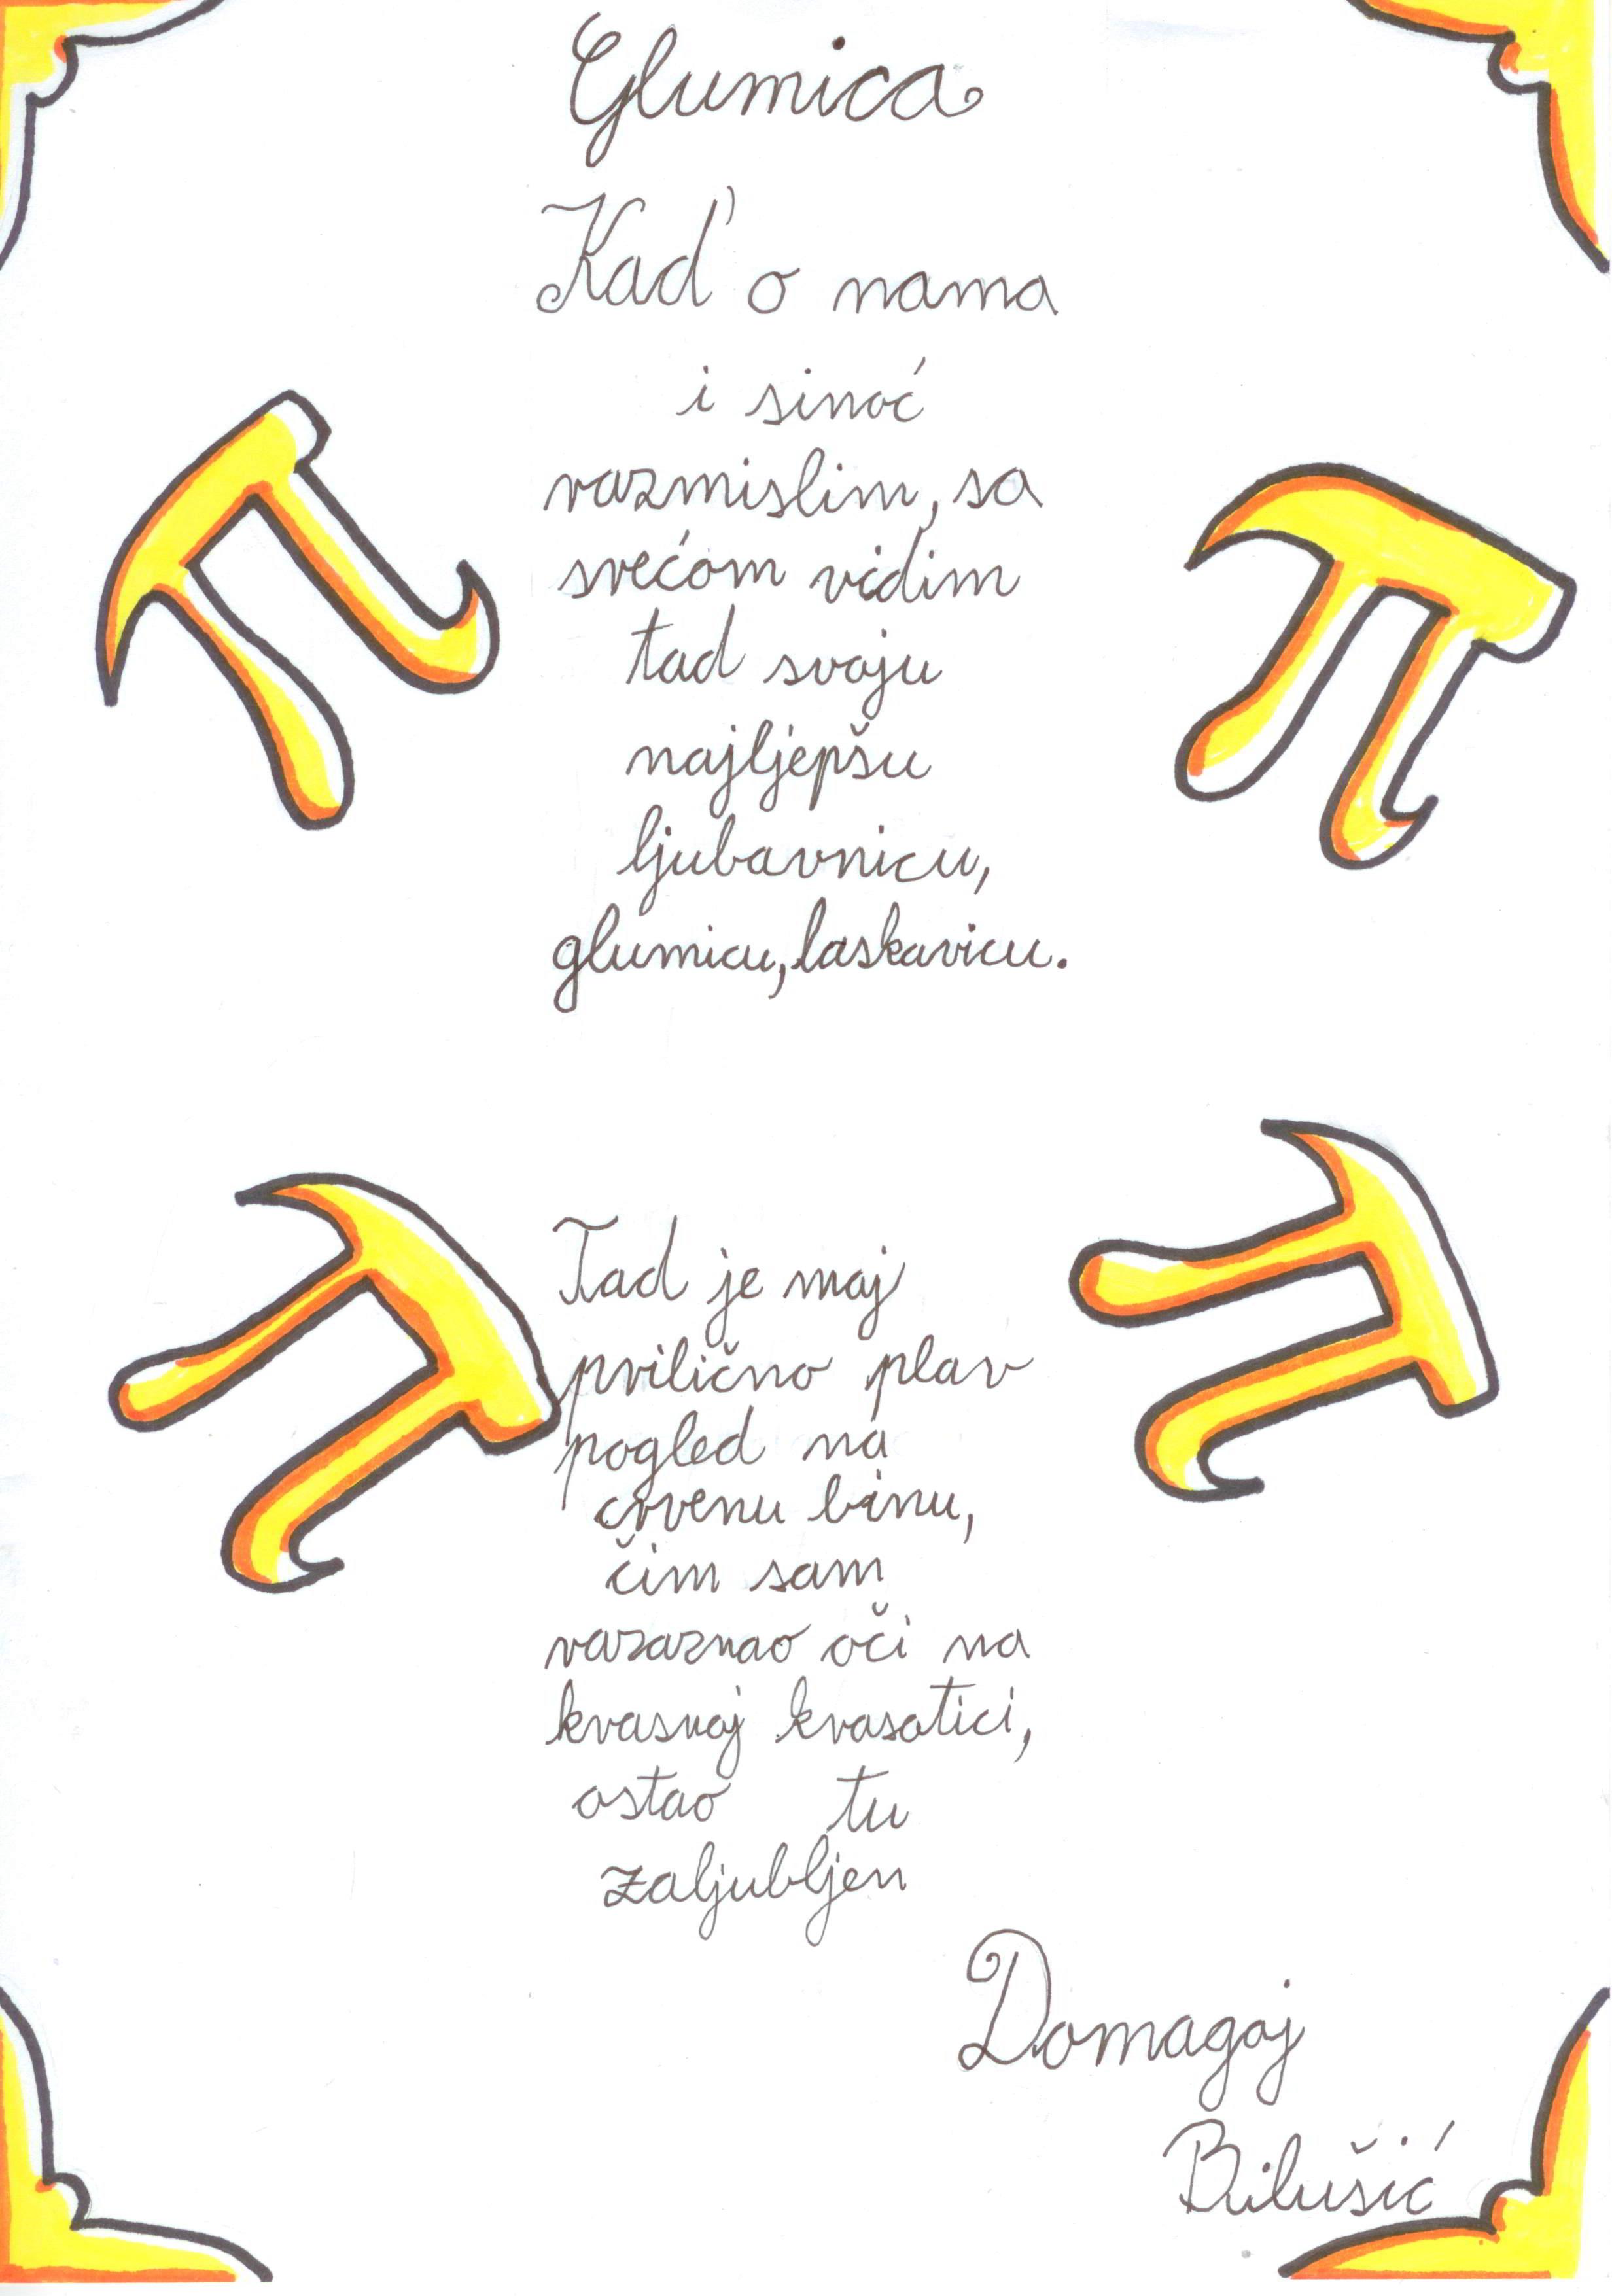 Glumica
Kad' o nama
i sinoć
razmislim, sa
srećom vidim
tad svoju
najljepšu
ljubavnicu,
glumicu, laskavicu.
Tad je moj
prilično plav
pogled na
crvenu binu,
čim sam
razaznao oči na
krasnoj krasotici,
ostao tu
zaljubljen
Domagoj
Bilušić